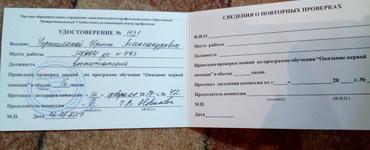 Частное образовательное учреждение дополнительного профессионального образования
Межрегиональный Учебно-консультационный центр профсоюзов
УДОСТОВЕРЕНИЕ № 1131
Выдано
Место работы МДОУ д/с № 443
Должность воспитатель
Проведена проверка знаний по программе обучения "Оказание первой
помощи" в объеме 16 часов.
Протокол заседания комиссии
Председатель комиссии
(подпись) (Ф.И.О.)
М.П. Дата
СВЕДЕНИЯ О ПОВТОРНЫХ ПРОВЕРКАХ
Ф.И.О.
Место работы
Должность
Проведена проверка знаний по программе обучения "Оказание первой
помощи" в объеме часов.
Протокол заседания от «  » 20 г. №
Председатель комиссии
(подпись) (Ф.И.О.)
М.П. Дата